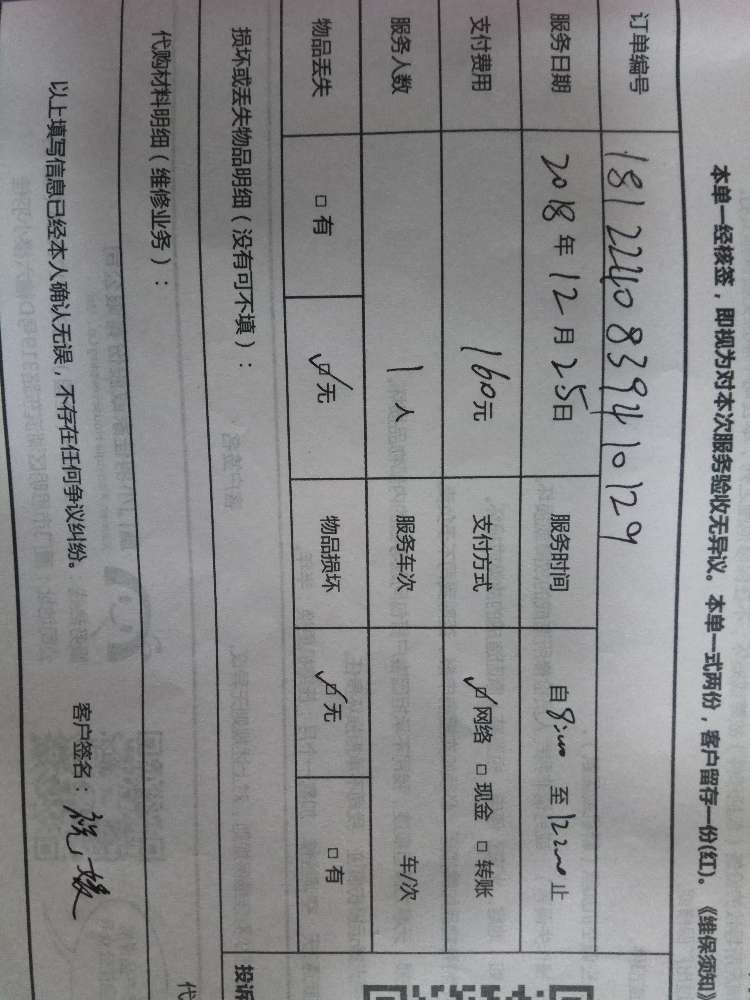 本单一经核签，即视为对本次服务验收无异议。本单一式两份，客户留存一份(红)。《维保须知》
订单编号 1812240839410129
服务日期 2018年12月25日 服务时间 自8:00 至12:00止
支付费用 160元 支付方式 ☑网络 □现金 □转账
服务人数 1人 服务车次 车/次
物品丢失 □有 ☑无 物品损坏 ☑无 □有
损坏或丢失物品明细（没有可不填）：
投诉
代购材料明细（维修业务）：
代
以上填写信息已经本人确认无误，不存在任何争议纠纷。 客户签名：